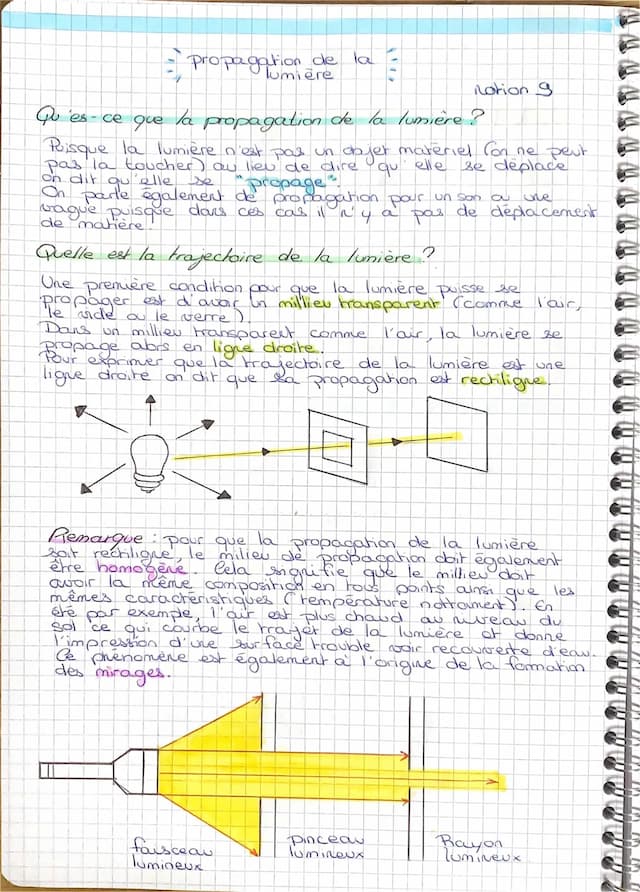 Propagation de la
lumière
Notion 9
Qu'es-ce que la propagation de la lumière ?
Puisque la lumière n'est pas un objet matériel (on ne peut
pas la toucher) au lieu de dire qu'elle se déplace
on dit qu'elle se "propage".
On parle également de propagation pour un son ou une
vague puisque dans ces cas il n'y a pas de déplacement
de matière.
Quelle est la trajectoire de la lumière ?
Une première condition pour que la lumière puisse se
propager est d'avoir un millieu transparent (comme l'air,
le vide ou le verre)
Dans un millieu transparent comme l'air, la lumière se
propage alors en ligne droite.
Pour exprimer que la trajectoire de la lumière est une
ligne droite on dit que sa propagation est rectiligne.
Remarque : pour que la propagation de la lumière
soit rectiligne, le milieu de propagation doit également
être homogène. Cela signifie que le millieu doit
avoir la même composition en tous points ainsi que les
mêmes caractéristiques (température nottament). En
été par exemple, l'air est plus chaud au niveau du
sol ce qui courbe le trajet de la lumière et donne
l'impression d'une surface trouble voir recouverte d'eau.
Ce phénomène est également à l'origine de la formation
des mirages.
faisceau
lumineux
pinceau
lumineux
Rayon
lumineux